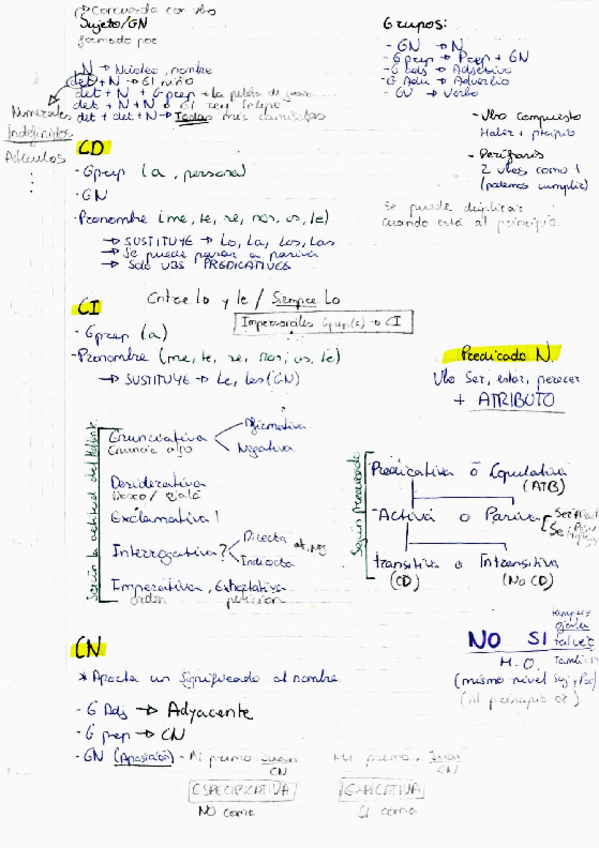 Concuerda con vbo
Sujeto/GN
formado por
N → Núcleo, nombre
det + N → El niño
det + N + Gprep → La pelota de
det + N + N → El rey Felipe
det + det + N → Todas mis camisetas
Numerales
Indefinidos
Artículos
Grupos:
- GN → N
- Gprep → Prep + GN
- G adj → Adjetivo
- G Adv → Adverbio
- GV → Verbo
- Vbo compuesto
Haber + ptcipio
- Perífrasis
2 vbos como 1
(podemos cumplir)
Se puede duplicar
cuando está al principio.
CD
- Gprep (a, personal)
- GN
- Pronombre (me, te, se, nos, os, le)
→ SUSTITUYE → Lo, La, Los, Las
→ Se puede pasar a pasiva
→ Solo VBS PREDICATIVOS
CI
Entre lo y le / Siempre Lo
Impersonales Gprep(a) → CI
- Gprep (a)
- Pronombre (me, te, se, nos, os, le)
→ SUSTITUYE → Le, les (GN)
Predicado N.
Vbo Ser, estar, parecer
+ ATRIBUTO
Según la actitud del hablante
Enunciativa
Enuncia algo
Afirmativa
Negativa
Desiderativa
Deseo / ojalá
Exclamativa !
Interrogativa ?
Directa
Indirecta
Imperativa, Exhortativa
orden petición
Según predicado
Predicativa o Copulativa
(ATB)
Activa o Pasiva
transitiva o Intransitiva
(CD) (No CD)
CN
* Aporta un significado al nombre
- G Adj → Adyacente
- G prep → CN
- GN (Aposición) - Mi primo Juan
CN
Mi primo, Juan
CN
ESPECIFICATIVA
NO coma
EXPLICATIVA
SI coma
NO SI
tampoco
ojalá
tal vez
también
M.O.
(mismo nivel Suj y Pred)
(al principio or)